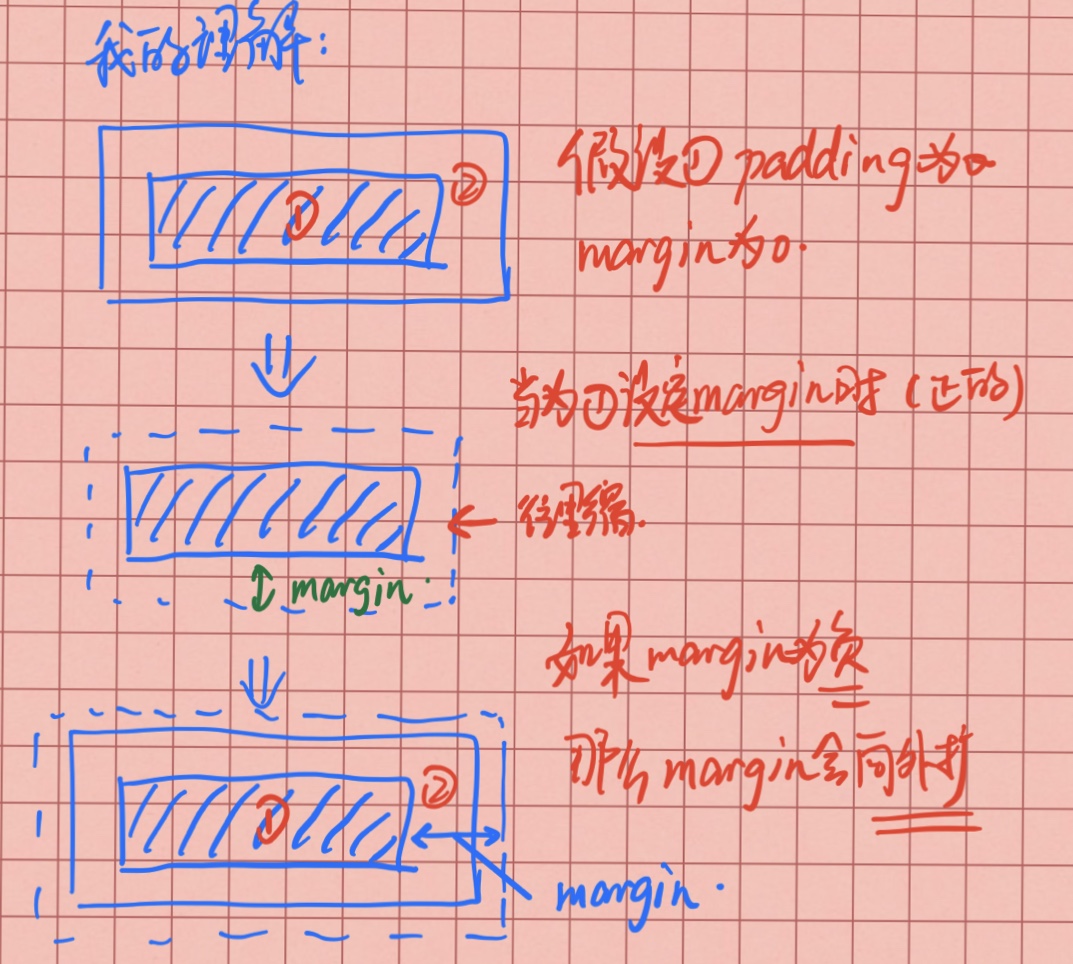 我的理解:
② ①
假设① padding为0
margin为0.
当为①设定margin时(正的)
往里缩.
margin.
如果margin为负
那么margin会向外扩
② ①
margin.